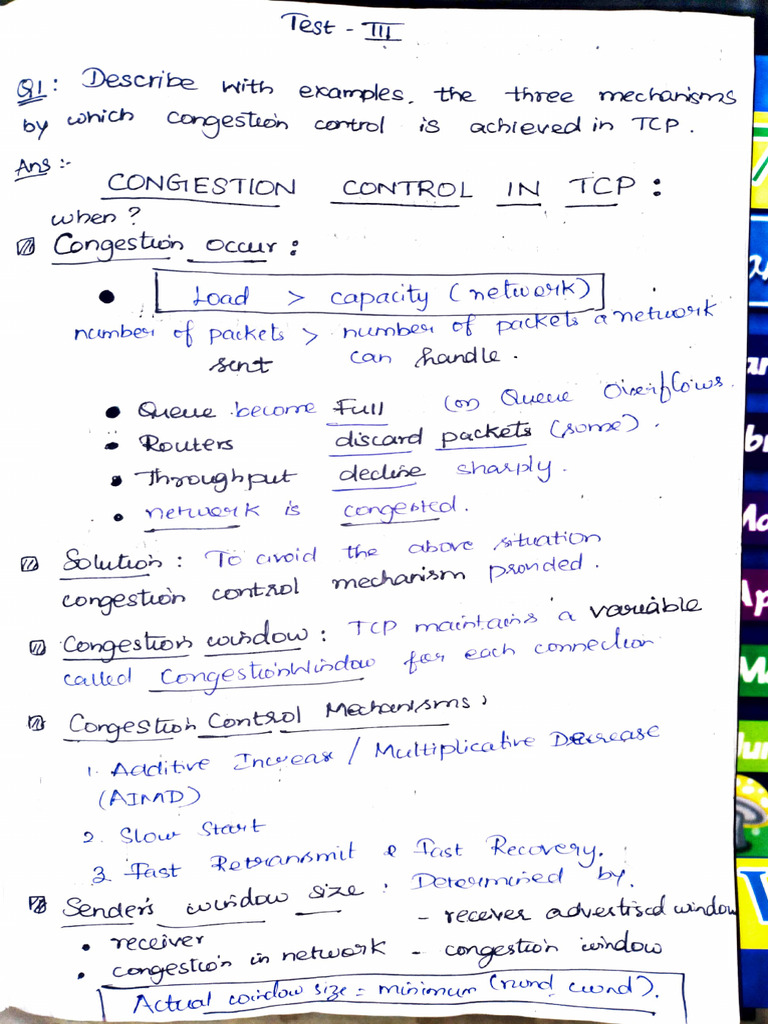 Test - III
Q1: Describe with examples, the three mechanisms
by which congestion control is achieved in TCP.
Ans :-
CONGESTION CONTROL IN TCP :
when?
Congestion occur :
Load > capacity (network)
number of packets > number of packets a network
sent can handle.
Queue become Full (or) Queue Overflows.
Routers discard packets (some).
Throughput decline sharply.
network is congested.
Solution : To avoid the above situation
congestion control mechanism provided.
Congestion window : TCP maintains a variable
called CongestionWindow for each connection
Congestion Control Mechanisms :
1. Additive Increase / Multiplicative Decrease
(AIMD)
2. Slow Start
3. Fast Retransmit & Fast Recovery.
Sender's window size : Determined by.
receiver - receiver advertised window
congestion in network - congestion window
Actual window size = minimum (rwnd, cwnd).